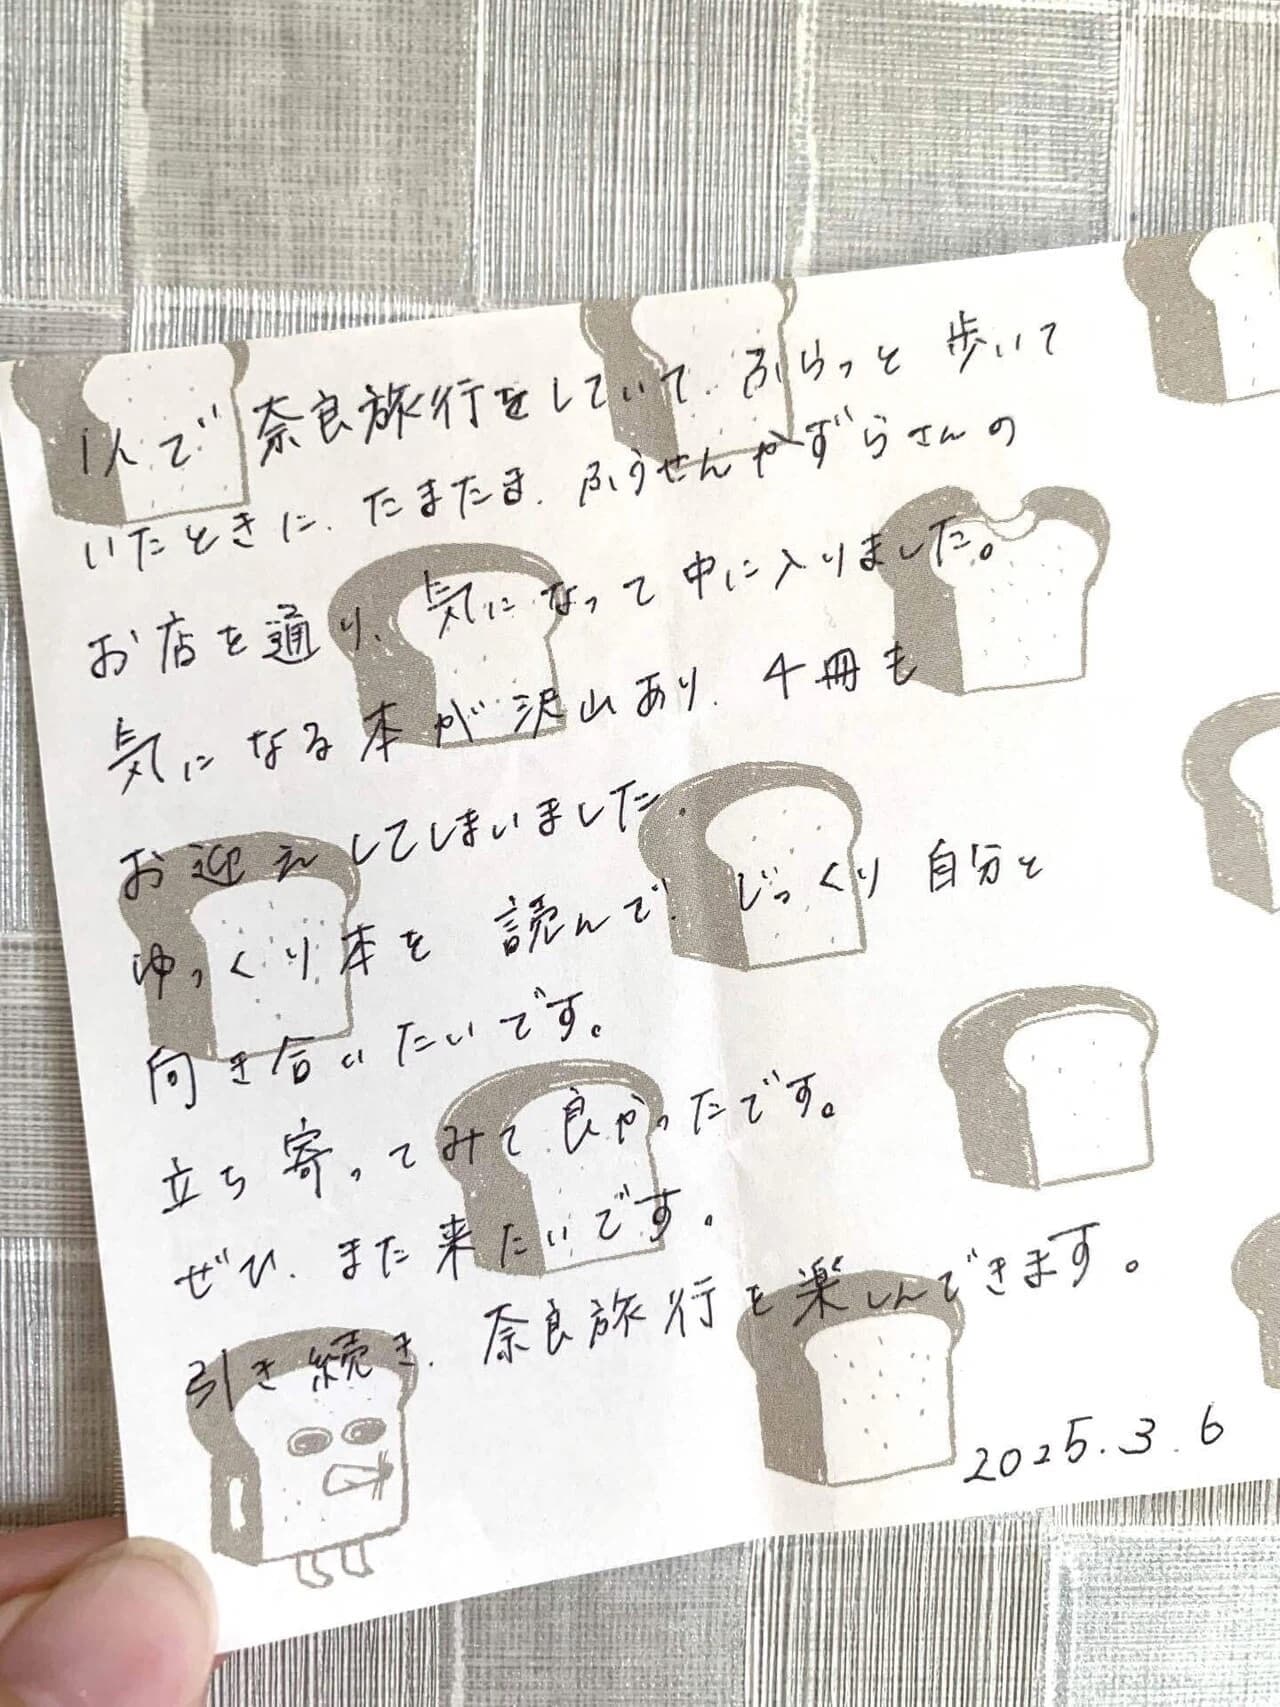 1人で奈良旅行をしていて、ふらっと歩いて
いたときに、たまたま、ふうせんかずらさんの
お店を通り、気になって中に入りました。
気になる本が沢山あり、4冊も
お迎えしてしまいました。
ゆっくり本を読んで、じっくり自分と
向き合いたいです。
立ち寄ってみて良かったです。
ぜひ、また来たいです。
引き続き、奈良旅行を楽しんできます。
2025.3.6